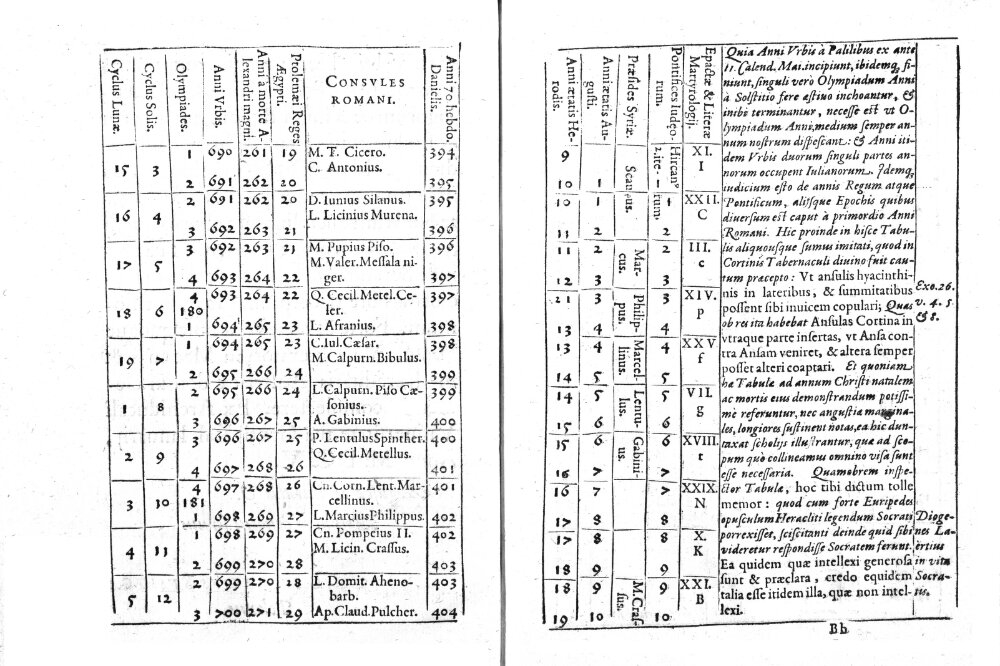 Cyclus Lunæ.
Cyclus Solis.
Olympiades.
Anni Vrbis.
Anni à morte A-
lexandri magni.
Ptolemæi Reges
Ægypti.
CONSVLES
ROMANI.
Anni 70. hebdo.
Danielis.
15 3 1 690 261 19 M. T. Cicero. 394
C. Antonius.
2 691 262 20 395
16 4 2 691 262 20 D. Iunius Silanus. 395
L. Licinius Murena.
3 692 263 21 396
17 5 3 692 263 21 M. Pupius Piso. 396
M. Valer. Messala ni-
4 693 264 22 ger. 397
18 6 4 693 264 22 Q. Cecil. Metel. Ce- 397
180 ler.
1 694 265 23 L. Afranius. 398
19 7 1 694 265 23 C. Iul. Cæsar. 398
M. Calpurn. Bibulus.
2 695 266 24 399
1 8 2 695 266 24 L. Calpurn. Piso Cæ- 399
sonius.
3 696 267 25 A. Gabinius. 400
2 9 3 696 267 25 P. Lentulus Spinther. 400
Q. Cecil. Metellus.
4 697 268 26 401
3 10 4 697 268 26 Cn. Corn. Lent. Mar- 401
181 cellinus.
1 698 269 27 L. Marcius Philippus. 402
4 11 1 698 269 27 Cn. Pompeius II. 402
M. Licin. Crassus.
2 699 270 28 403
5 12 2 699 270 28 L. Domit. Aheno- 403
barb.
3 700 271 29 Ap. Claud. Pulcher. 404
Anni ætatis He-
rodis.
Anni ætatis Au-
gusti.
Præsides Syriæ.
Pontifices Iudæo-
rum.
Epactæ & Literæ
Martyrologij.
9 Scaurus. Hircan⁹ iterum. XI.
I
10 1 1
10 1 1 XXII.
C
11 2 2
11 2 Marcus. 2 III.
c
12 3 3
21 3 Philippus. 3 XIV.
P
13 4 4
13 4 Marcellinus. 4 XXV
f
14 5 5
14 5 Lentulus. 5 VII.
g
15 6 6
15 6 Gabinius. 6 XVIII.
t
16 7 7
16 7 7 XXIX.
N
17 8 8
17 8 8 X.
K
18 9 9
18 9 M. Crassus. 9 XXI.
B
19 10 10
Quia Anni Vrbis à Palilibus ex ante
11. Calend. Mai. incipiunt, ibidemq, fi-
niunt, singuli verò Olympiadum Anni
à Solstitio fere æstiuo inchoantur, &
inibi terminantur, necesse est vt O-
lympiadum Anni, medium semper an-
num nostrum dispescant: & Anni iti-
dem Vrbis duorum singuli partes an-
norum occupent Iulianorum. Idemq,
iudicium esto de annis Regum atque
Pontificum, aliisque Epochis quibus
diuersum est caput à primordio Anni
Romani. Hic proinde in hisce Tabu-
lis aliquousque sumus imitati, quod in
Cortinis Tabernaculi diuino fuit cau-
tum præcepto: Vt ansulis hyacinthi-
nis in lateribus, & summitatibus
possent sibi inuicem copulari; Quas
ob res ita habebat Ansulas Cortina in
vtraque parte insertas, vt Ansa con-
tra Ansam veniret, & altera semper
posset alteri coaptari. Et quoniam
hæ Tabulæ ad annum Christi natalem
ac mortis eius demonstrandum potissi-
mè referuntur, nec angustia margina-
les, longiores sustinent notas, ea hic dun-
taxat scholijs illustrantur, quæ ad sco-
pum quò collineamus omnino visa sunt
esse necessaria. Quamobrem inspe-
ctor Tabulæ, hoc tibi dictum tolle
memor: quod cum forte Euripedes
opusculum Heracliti legendum Socrati
porrexisset, sciscitanti deinde quid sibi
videretur respondisse Socratem ferunt.
Ea quidem quæ intellexi generosa
sunt & præclara, credo equidem
talia esse itidem illa, quæ non intel-
lexi.
Exo. 26.
v. 4. 5
& 8.
Dioge-
nes La-
ërtius
in vita
Socra-
tis.
Bb